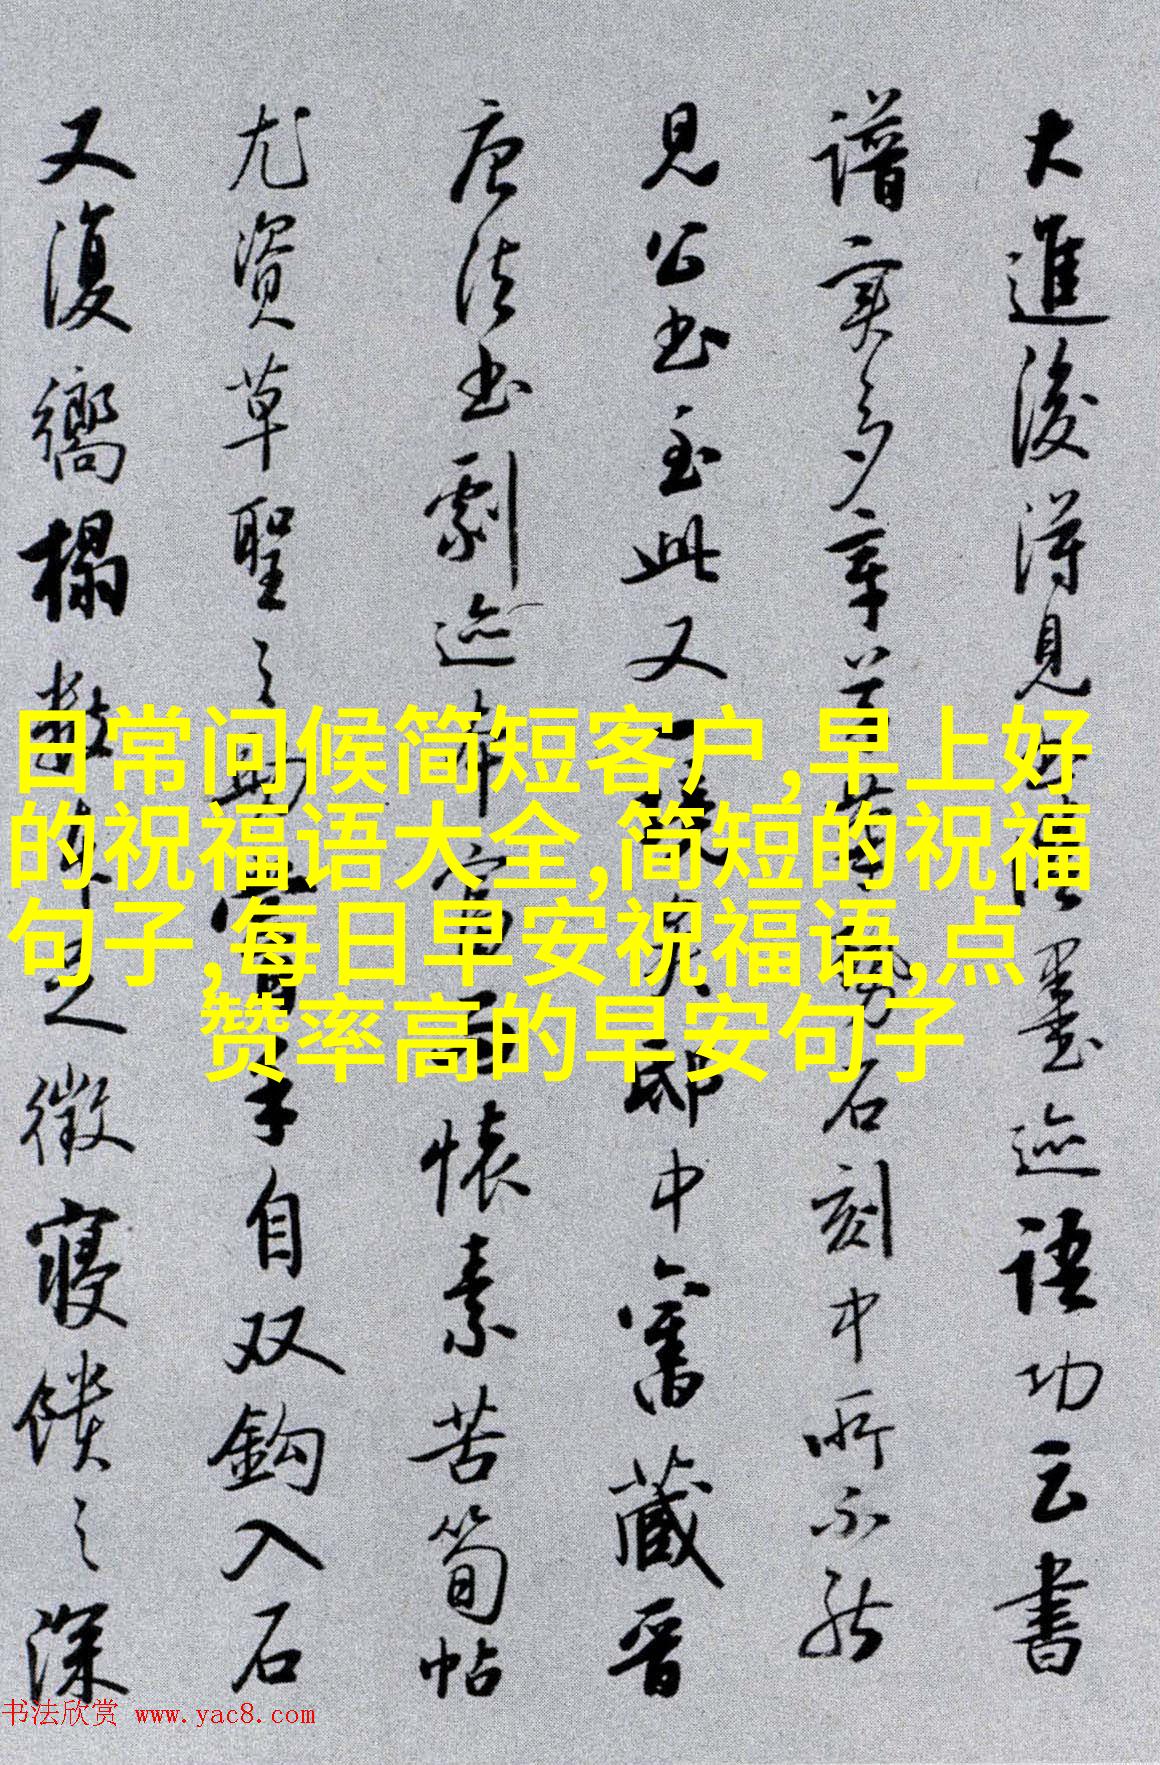 大進後得見  墨迹語功云書
譜实多章草  石刻中所不能
見公书至此又  邸中舊藏晉
唐法书劇迹  懷素苦筍帖
尤資草聖之  自双鈎入石
又復嚮榻数  徵寢饋之深
日常问候简短客户,早上好
的祝福语大全,简短的祝福
句子,每日早安祝福语,点
赞率高的早安句子
书法欣赏 www.yac8.com